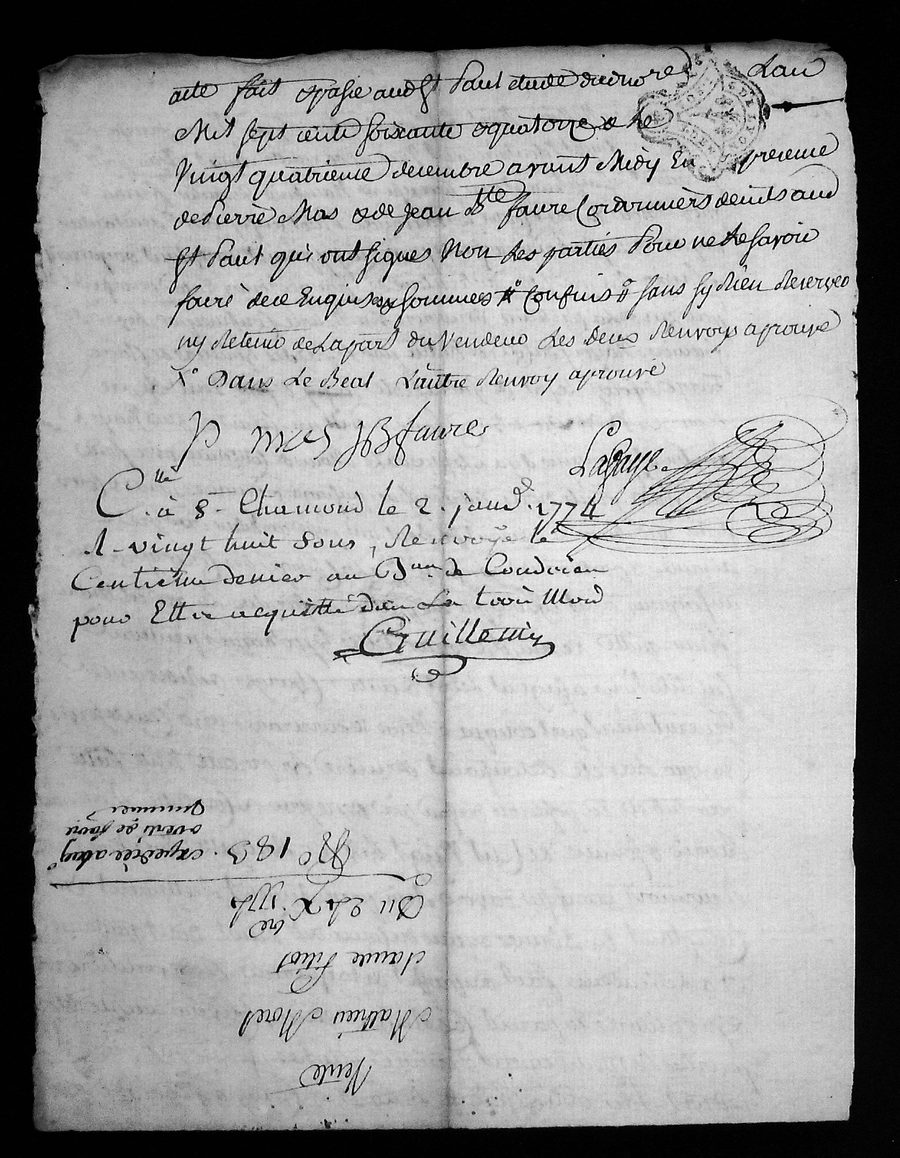 acte fait & passé aud St Paul etude du no.re L'an
Mil sept cents soixante & quatorze & le
Vingt quatrieme decembre avant Midy En presence
de Pierre Mas & de Jean Bte faure Cordonniers de nts aud
St Paul qui ont signes Non Les parties Pour ne le savoir
faire de ce Enquis & sommes confins sans sy Rien Reserver
ny Retenir de La part du Vendeur Les Deux Renvoys aprouvé
Dans Le Beal L'autre Renvoy aprouvé
P mas JB faure
Lafaye
C.lle à St Chamond le 2. janv. 1774
R. vingt huit sous, Renvoyé le
Centieme denier au Bau de Condrieu
pour Etre acquitté dans Les trois Mois
Guillemin
Vente
Mathieu Morel
Claude
Du 24 Xbre 1774
No 183. expediée